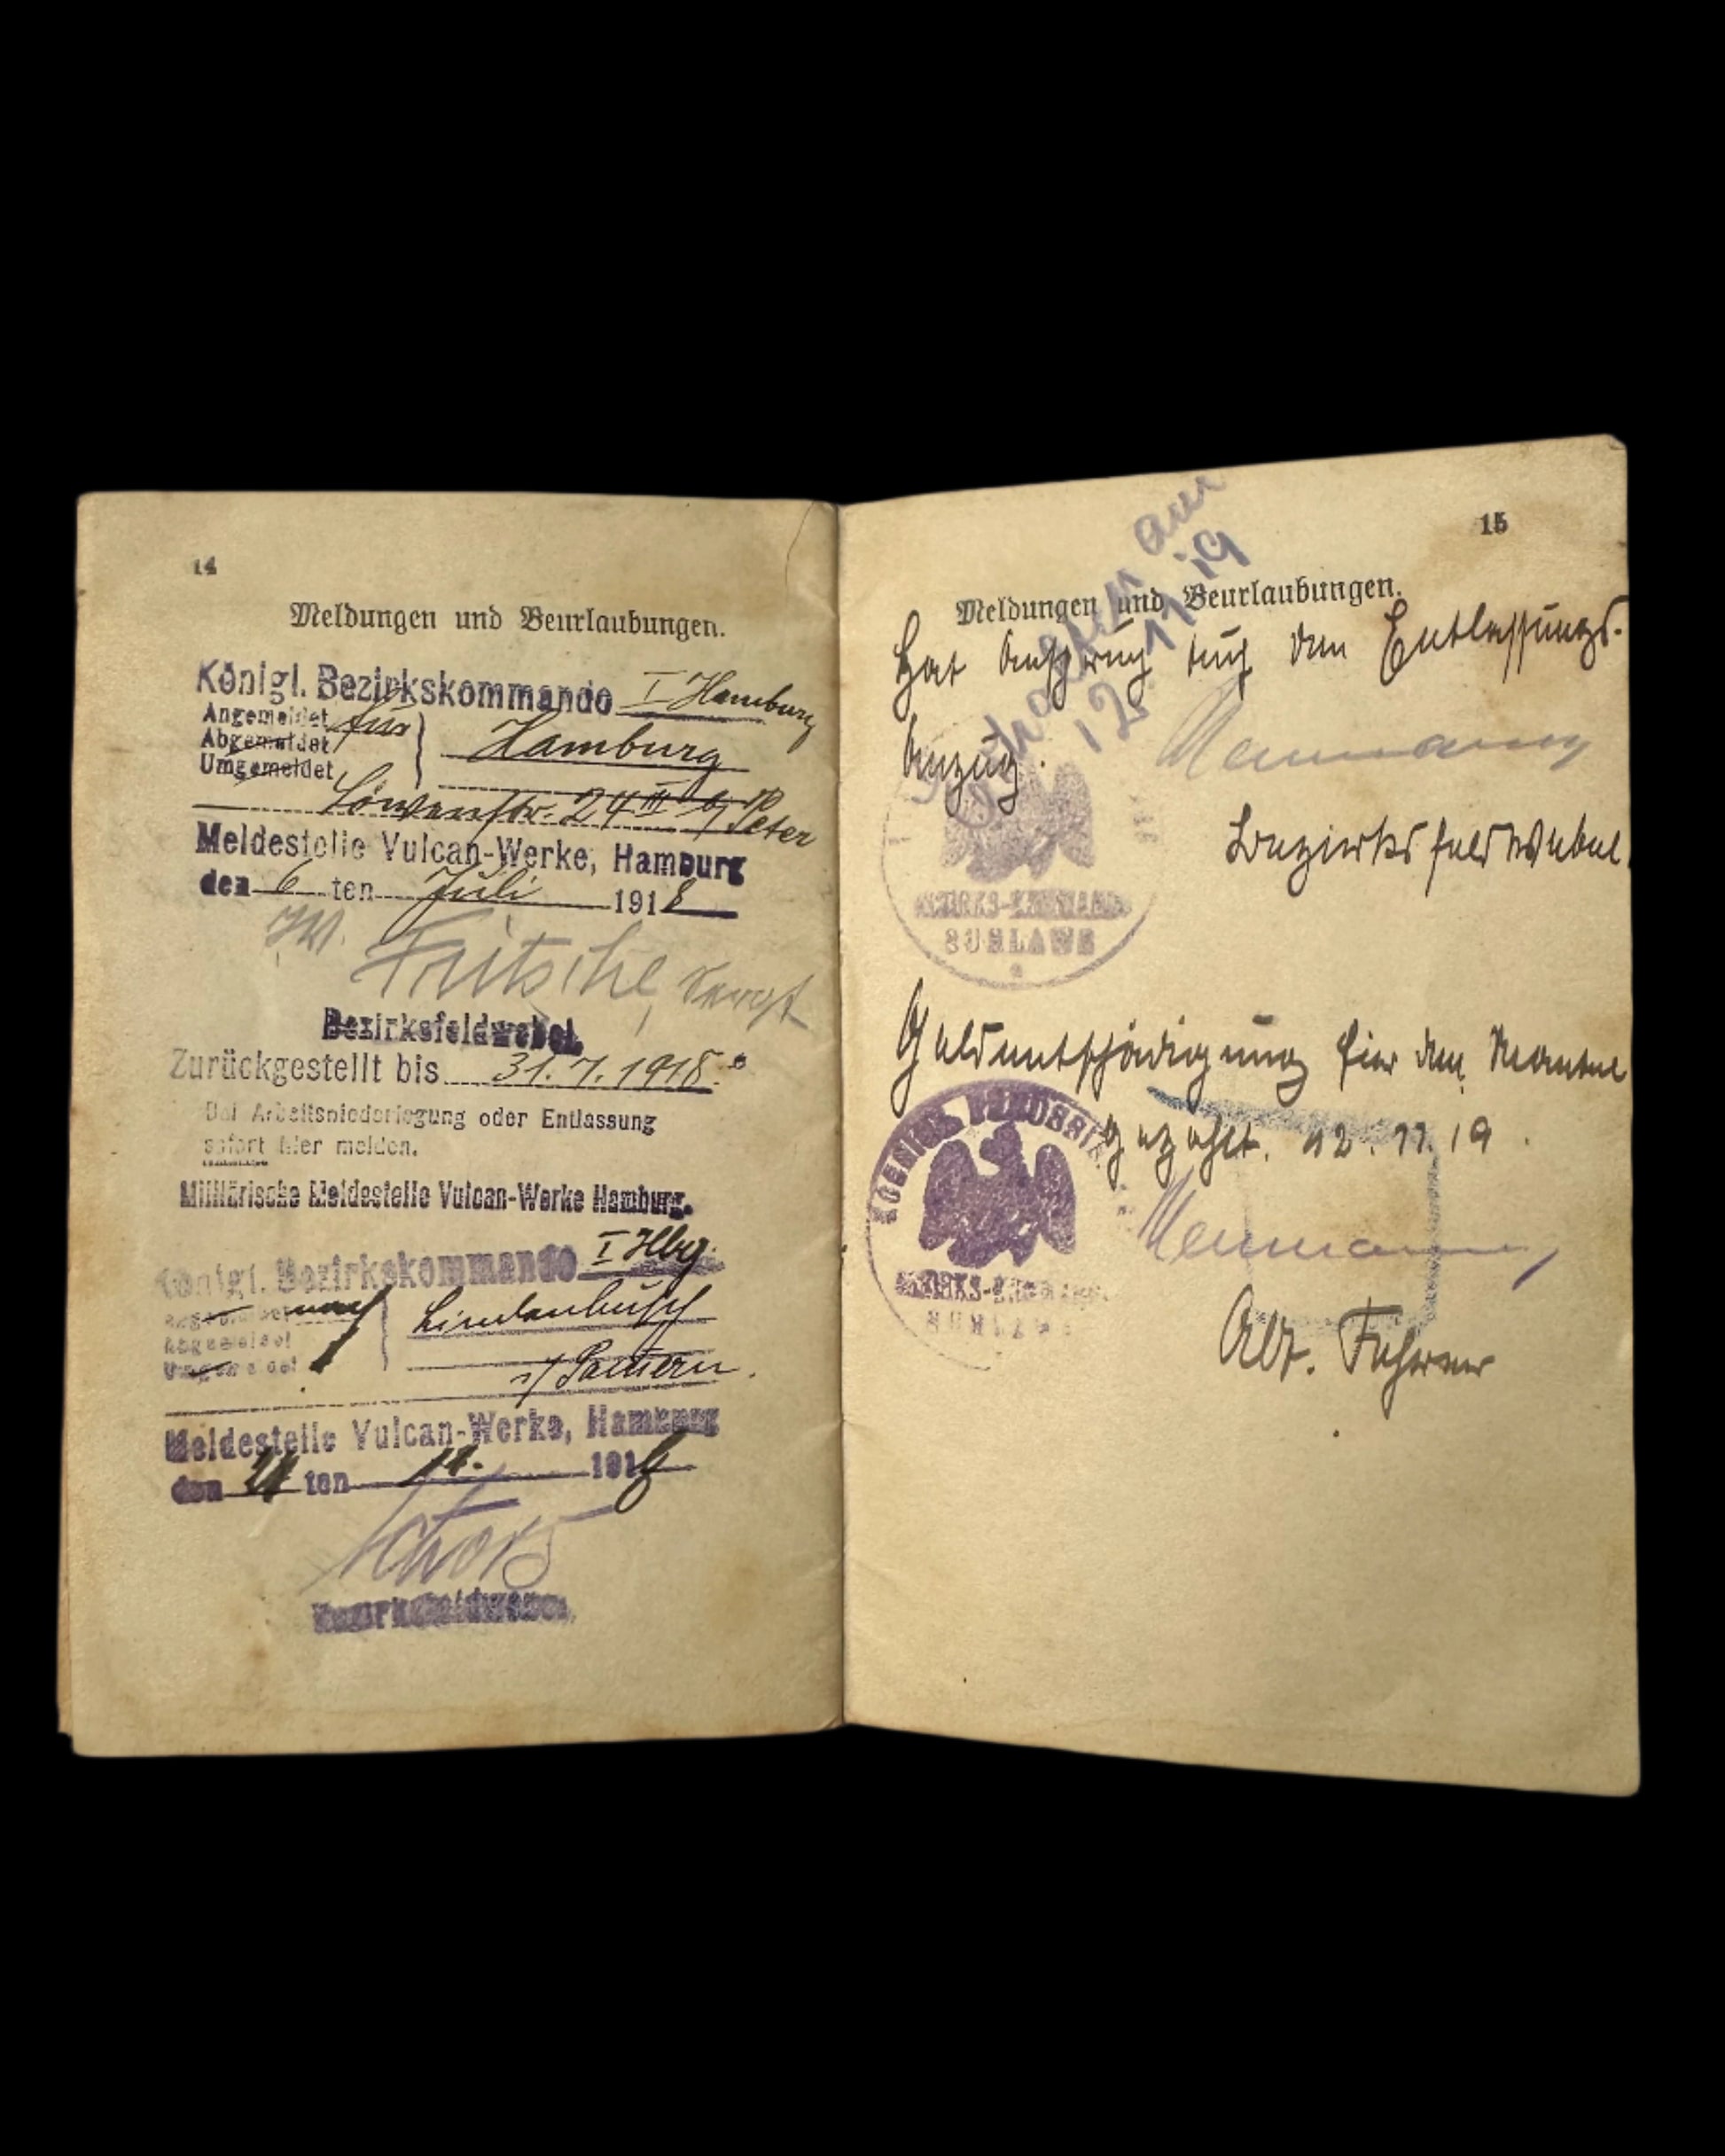 14
Meldungen und Beurlaubungen.
Königl. Bezirkskommando I Hamburg
Angemeldet
Abgemeldet
Umgemeldet
Hamburg
Löwenstr. 24 III b/ Peter
Meldestelle Vulcan-Werke, Hamburg
den 6 ten Juli 1918
I.V.
Fritsche, Sergt
Bezirksfeldwebel.
Zurückgestellt bis 31.7.1918.
Bei Arbeitsniederlegung oder Entlassung
sofort hier melden.
Militärische Meldestelle Vulcan-Werke Hamburg.
Königl. Bezirkskommando I Hbg.
nach
Abgemeldet
Lindenbusch
i/ Pomern.
Meldestelle Vulcan-Werke, Hamburg
den ten 11. 1918
Bezirksfeldwebel.
15
Meldungen und Beurlaubungen.
Erhalten am
12.11.19
Hat Anspruch auf den Entlassungs-
Anzug.
Neumann
Bezirksfeldwebel.
BEZIRKS-KOMMANDO
Geldentschädigung für den Mantel
gezahlt. 12.11.19.
Neumann
BEZIRKS-KOMMANDO